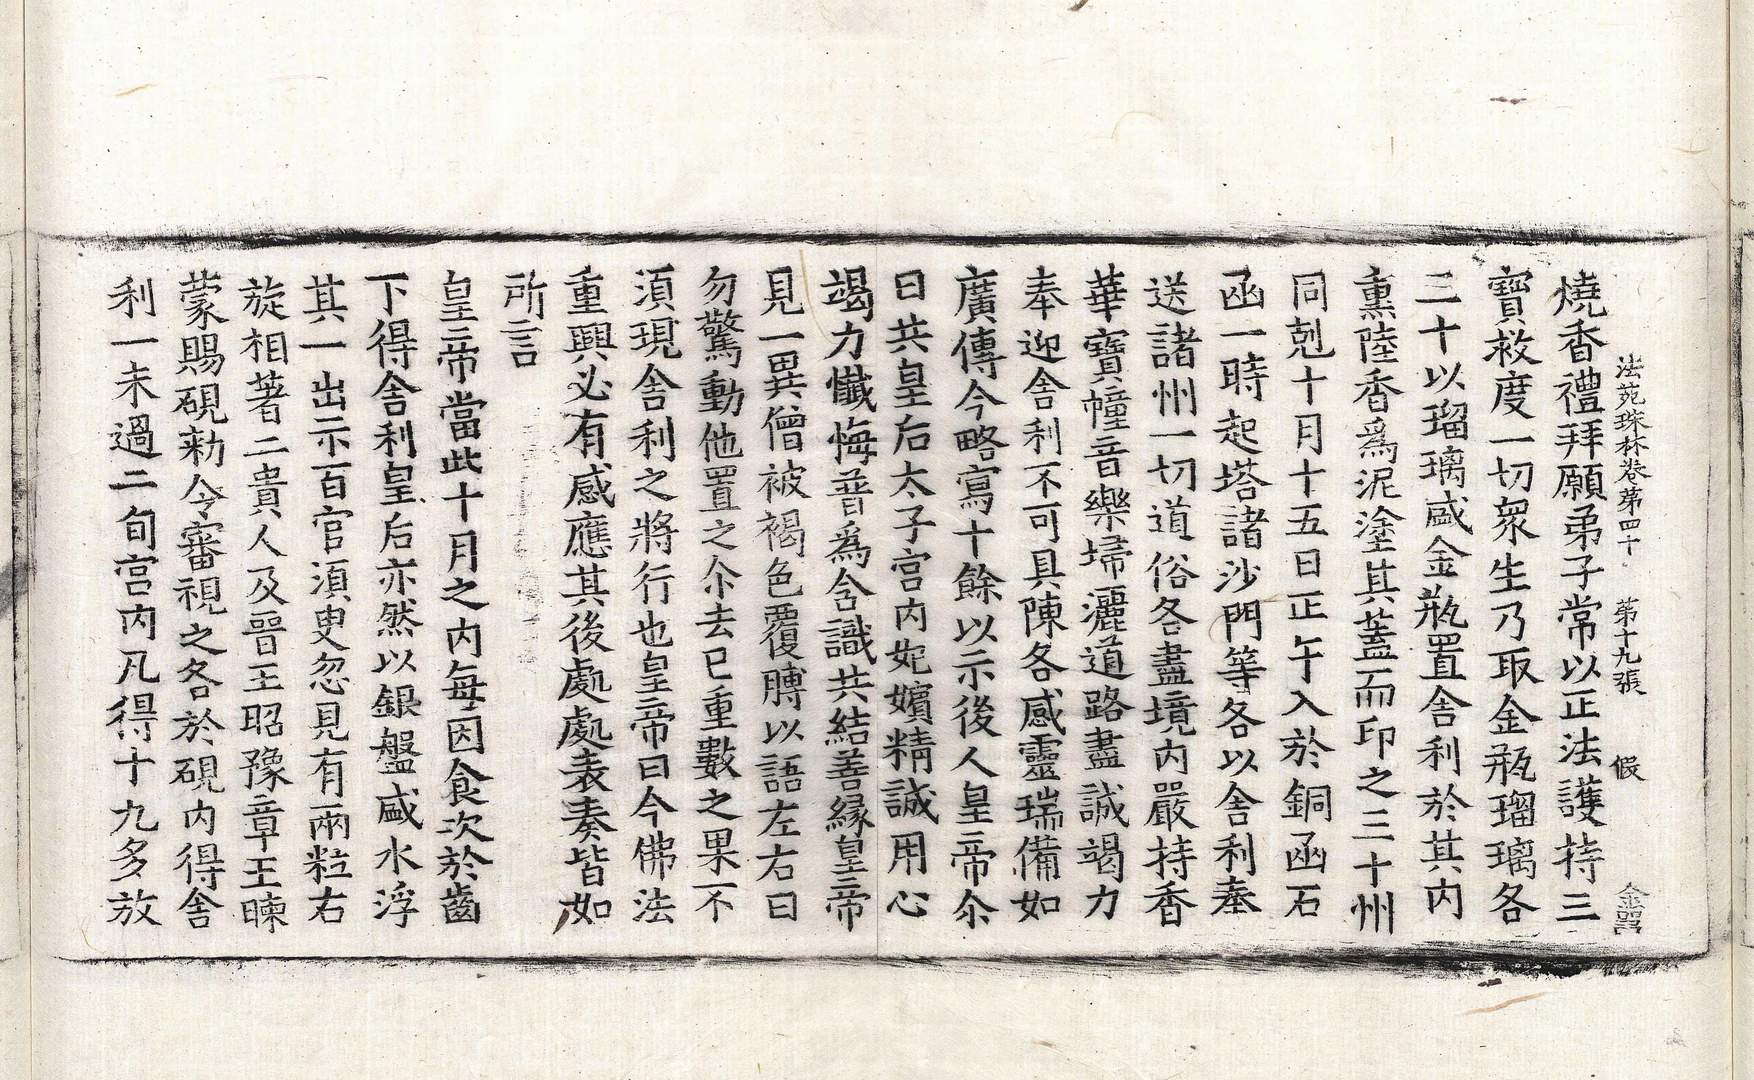 法苑珠林卷第四十 第十九張 假 金器
燒香禮拜願弟子常以正法護持三
寶救度一切衆生乃取金瓶瑠璃各
三十以瑠璃盛金瓶置舍利於其内
熏陸香爲泥塗其蓋而印之三十州
同剋十月十五日正午入於銅函石
函一時起塔諸沙門等各以舍利奉
送諸州一切道俗各盡境内嚴持香
華寶幢音樂埽灑道路盡誠竭力
奉迎舍利不可具陳各感靈瑞備如
廣傳今略寫十餘以示後人皇帝尒
日共皇后太子宫内妃嬪精誠用心
竭力懺悔普爲含識共結善緣皇帝
見一異僧被褐色覆膊以語左右曰
勿驚動他置之尒去已重數之果不
須現舍利之將行也皇帝曰今佛法
重興必有感應其後處處表奏皆如
所言
皇帝當此十月之内每因食次於齒
下得舍利皇后亦然以銀盤盛水浮
其一出示百官須臾忽見有兩粒右
旋相著二貴人及晉王昭豫章王暕
蒙賜硯勑令審視之各於硯内得舍
利一未過二旬宫内凡得十九多放